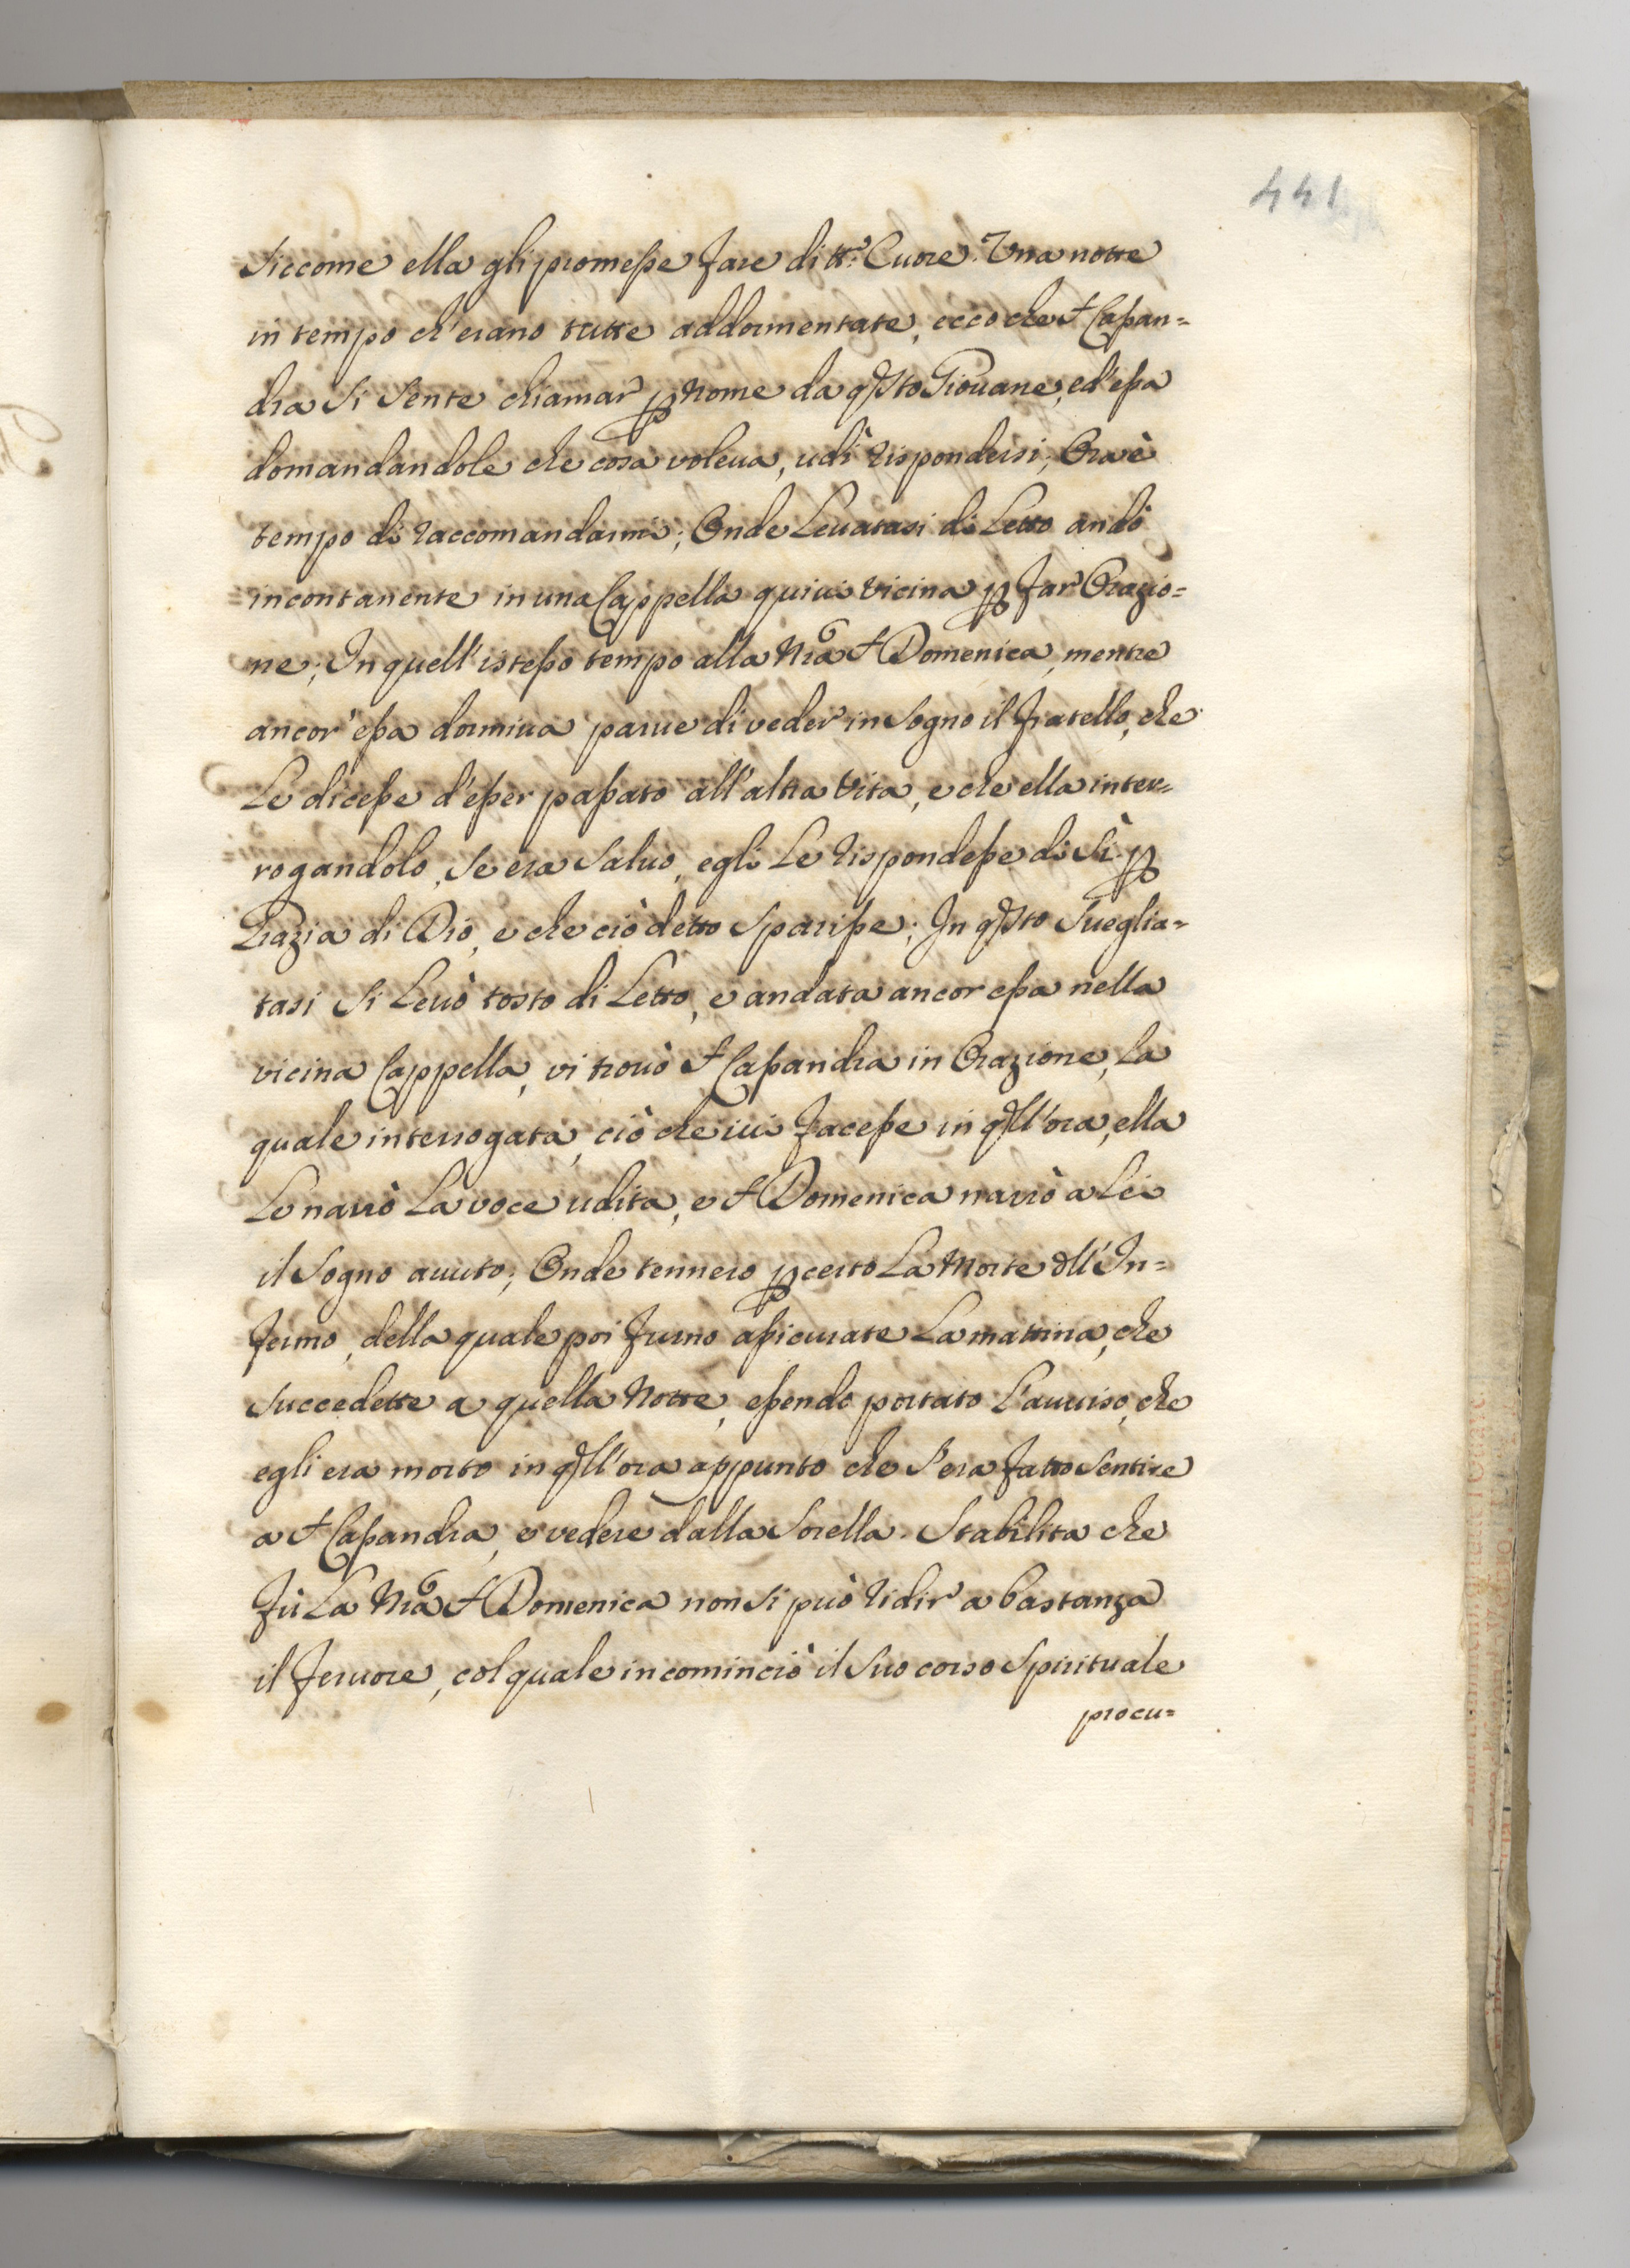 441
Siccome ella gli promesse fare di tt.º Cuore. Una notte
in tempo ch'erano tutte addormentate, ecco che S. Cassan=
dra si sente chiamar p nome da qsto Giouane, ed'essa
domandandole che cosa voleua, udì rispondersi, Ora è
tempo di raccomandarmi; Onde Leuatasi di Letto andò
incontanente in una Cappella quiui vicina p far Orazio=
ne; In quell'istesso tempo alla Nrã S. Domenica, mentre
ancor'essa dormiua parue di veder in sogno il fratello, che
Le dicesse d'esser passato all'altra Vita, e che ella inter=
rogandolo, se era saluo, egli Le rispondesse di Sì p
Grazia di Dio, e che ciò detto sparisse; In qsto sueglia=
tasi si Leuò tosto di Letto, e andata ancor essa nella
vicina Cappella, vi trouò S. Cassandra in Orazione, La
quale interrogata, ciò che iui facesse in qll'ora, ella
Le narrò La voce udita, e S. Domenica narrò a Lei
il sogno auuto; Onde tennero p certo La Morte dll'In=
fermo, della quale poi furno assicurate La mattina, che
succedette a quella Notte, essendo portato L'auuiso, che
egli era morto in qll'ora appunto che s'era fatto sentire
a S. Cassandra, e vedere dalla Sorella. Stabilita che
fù La Nrã S. Domenica non si può ridir a bastanza
il feruore, col quale incominciò il suo corso spirituale
procu=